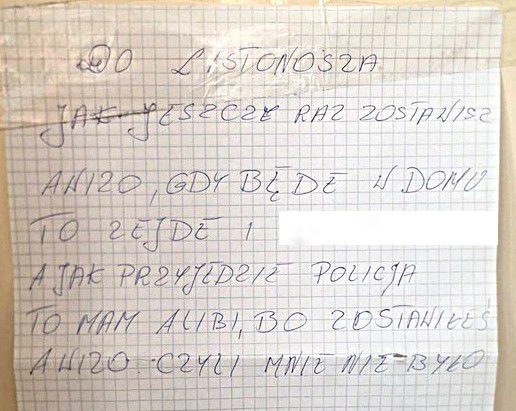 DO LISTONOSZA
JAK JESZCZE RAZ ZOSTAWISZ
AWIZO, GDY BĘDĘ W DOMU
TO ZEJDĘ I
A JAK PRZYJEDZIE POLICJA
TO MAM ALIBI, BO ZOSTAWIŁEŚ
AWIZO CZYLI MNIE NIE BYŁO